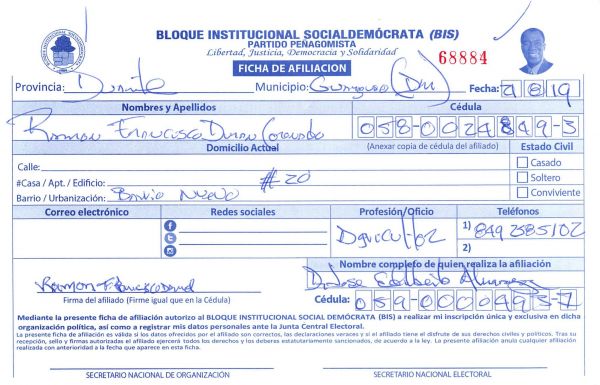 BLOQUE INSTITUCIONAL SOCIALDEMÓCRATA (BIS)
PARTIDO PEÑAGOMISTA
Libertad, Justicia, Democracia y Solidaridad
68884
FICHA DE AFILIACION
Provincia: Duarte Municipio: Fecha: 9 8 19
Nombres y Apellidos Cédula
Ramon Francisco Duran 058-0024849-3
Domicilio Actual (Anexar copia de cédula del afiliado) Estado Civil
Calle: Casado
#Casa / Apt. / Edificio: #20 Soltero
Barrio / Urbanización: Barrio Nuevo Conviviente
Correo electrónico Redes sociales Profesión/Oficio Teléfonos
Agricultor 1) 849 2585102
2)
Nombre completo de quien realiza la afiliación
Ramon Francisco Duran Jose
Firma del afiliado (Firme igual que en la Cédula) Cédula: 059-0000493-7
Mediante la presente ficha de afiliación autorizo al BLOQUE INSTITUCIONAL SOCIAL DEMÓCRATA (BIS) a realizar mi inscripción única y exclusiva en dicha
organización política, así como a registrar mis datos personales ante la Junta Central Electoral.
La presente ficha de afiliación es válida si los datos ofrecidos por el afiliado son correctos, las declaraciones veraces y si el afiliado tiene el disfrute de sus derechos civiles y políticos. Tras su
recepción, sello y firmas autorizadas el afiliado ejercerá todos los derechos y los deberes estatutariamente sancionados, de acuerdo a la ley. La presente afiliación anula cualquier afiliación
realizada con anterioridad a la fecha que aparece en esta ficha.
SECRETARIO NACIONAL DE ORGANIZACIÓN SECRETARIO NACIONAL ELECTORAL